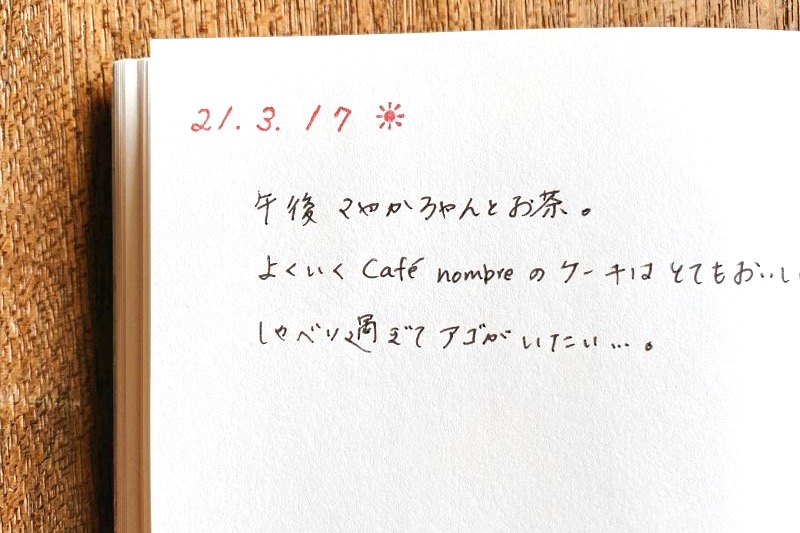 21.3.17
午後 さやかちゃんとお茶。
よくいく Café nombre のケーキは とてもおいし
しゃべり過ぎて アゴが いたい…。